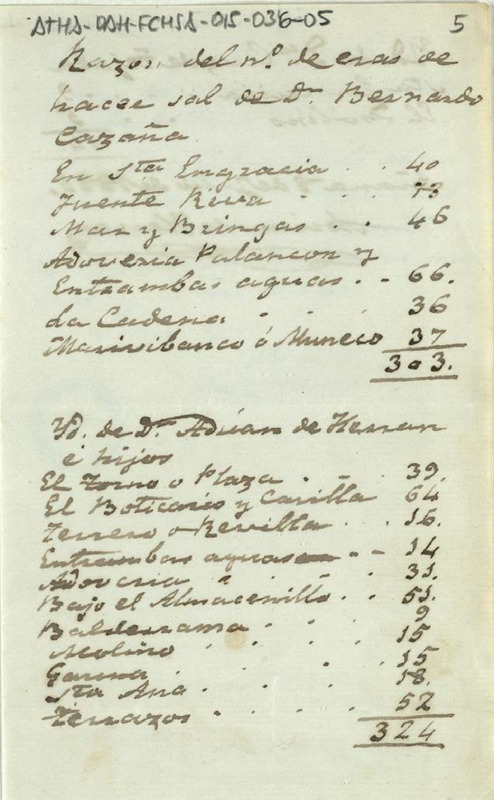 ATHA-DAH-FCHSA-015-036-05
5
Razon del nº. de eras de
hacer sal de Dn. Bernardo
Cazaña
En Sta Engracia . . 40
Fuente Riva . . 73
Mar y Bringas . . 46
Adoveria Palancon y
Entrambas aguas . . 66.
La Cadena . . 36
Marivibanco ó Muneco 37
303.
Yd. de Dn. Adrian de Herran
e hijos
El Torno o Plaza . . 39
El Boticario y Casilla 64
Terrero o Revilla . . 16.
Entrambas aguas . . 14
Adoveria . . 31.
Bajo el Almacenillo . . 51.
Balderrama . . . 9
Molino . . . . 15
Gauna . . . . 15
Sta Ana . . . . 18.
Terrazos . . . . 52
324